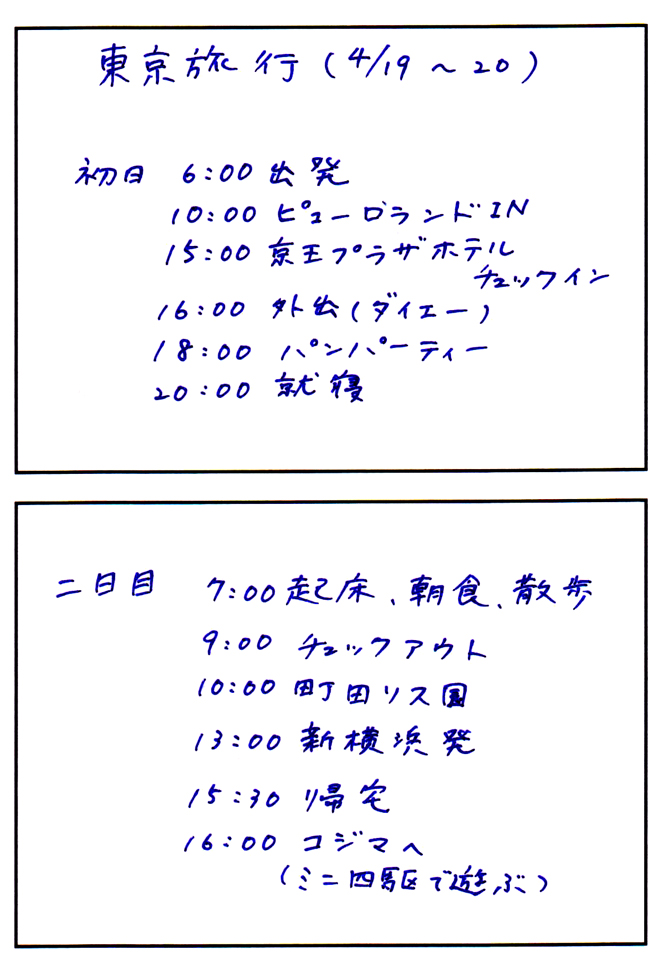 東京旅行(4/19～20)
初日 6:00 出発
10:00 ピューロランドIN
15:00 京王プラザホテル
チェックイン
16:00 外出(ダイエー)
18:00 パンパーティー
20:00 就寝
二日目 7:00 起床、朝食、散歩
9:00 チェックアウト
10:00 町田リス園
13:00 新横浜発
15:30 帰宅
16:00 コジマへ
(ミニ四駆で遊ぶ)